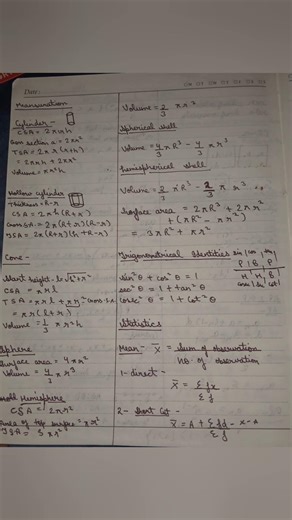 Date:
Mensuration
Cylinder -
CSA = 2πrh
TSA = 2πr(r+h)
= 2πrh + 2πr²
Volume = πr²h
Hollow cylinder
Thickness = R-r
CSA = 2πh(R+r)
Cone -
Slant height - l = √h²+r²
CSA = πrl
TSA = πrl + πr²
= πr(l+r)
Volume = 1/3 πr²h
Sphere
Surface area = 4πr²
Volume = 4/3 πr³
Solid Hemisphere
CSA = 2πr²
Area of top surface = πr²
TSA = 3πr²
Volume = 2/3 πr³
Spherical shell
Volume = 4/3 πR³ - 4/3 πr³
hemispherical shell
Volume = 2/3 πR³ - 2/3 πr³
Surface area = 2πR² + 2πr²
+ (πR² - πr²)
= 3πR² + πr²
Trigonometrical Identities
P | B | P
H | H | B
sin²θ + cos²θ = 1
sec²θ = 1 + tan²θ
cosec²θ = 1 + cot²θ
Statistics
Mean - x̄ = Sum of observation
no. of observation
1- direct -
x̄ = Σfx
Σf
2- Short Cut -
x̄ = A + Σfd
Σf